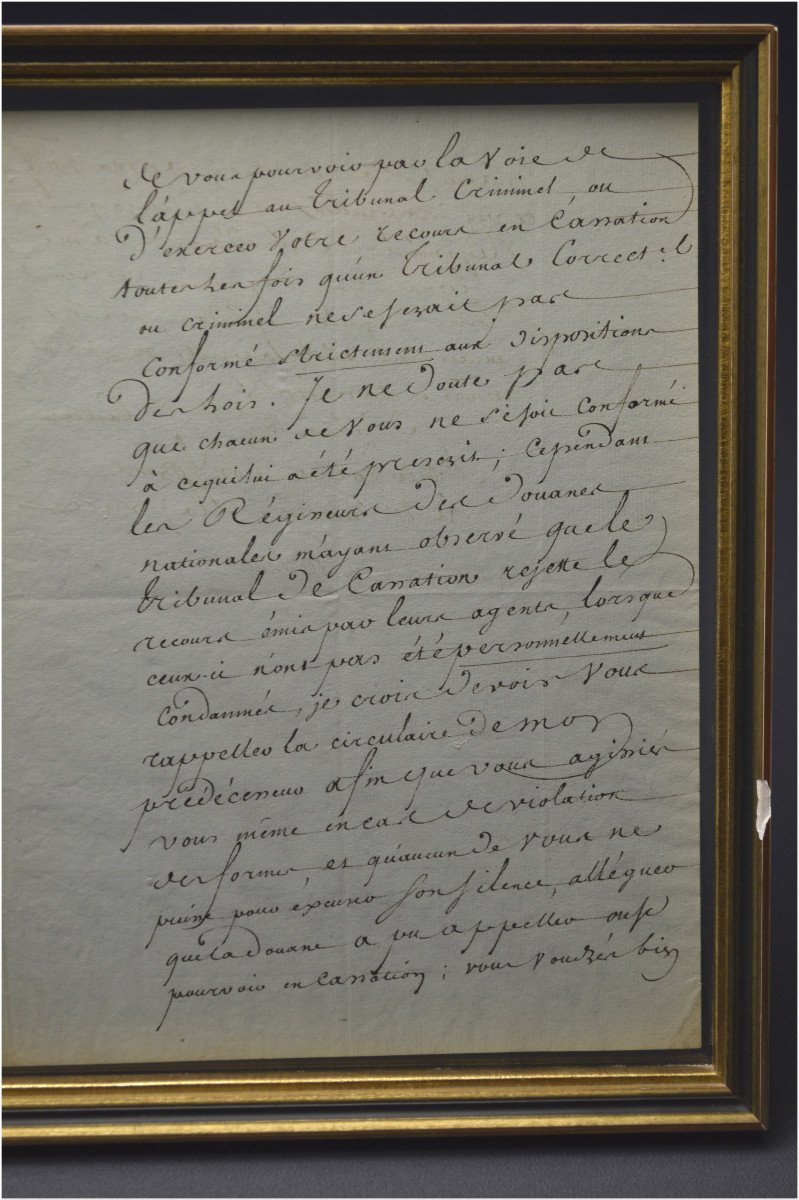 de vous pourvoir par la voie de
l'appel au Tribunal Criminel ou
d'exercer votre recours en Cassation
toutes les fois qu'un Tribunal Correct.el
ou criminel ne se serait pas
conformé strictement aux dispositions
des Lois. Je ne doute pas
que chacun de vous ne se soit conformé
à ce qui lui a été prescrit; Cependant
les Régisseurs des Douanes
nationales m'ayant observé que le
Tribunal de Cassation rejette le
recours émis par leurs agents, lorsque
ceux-ci n'ont pas été personnellement
Condamnés, je crois devoir vous
rappeller la circulaire de mon
prédécesseur afin que vous agissiés
vous même en cas de violation
des formes et qu'aucun de vous ne
puisse pour éxcuser son silence, alléguer
que la Douane a pu appeller ou se
pourvoir en Cassation; vous voudrés bien